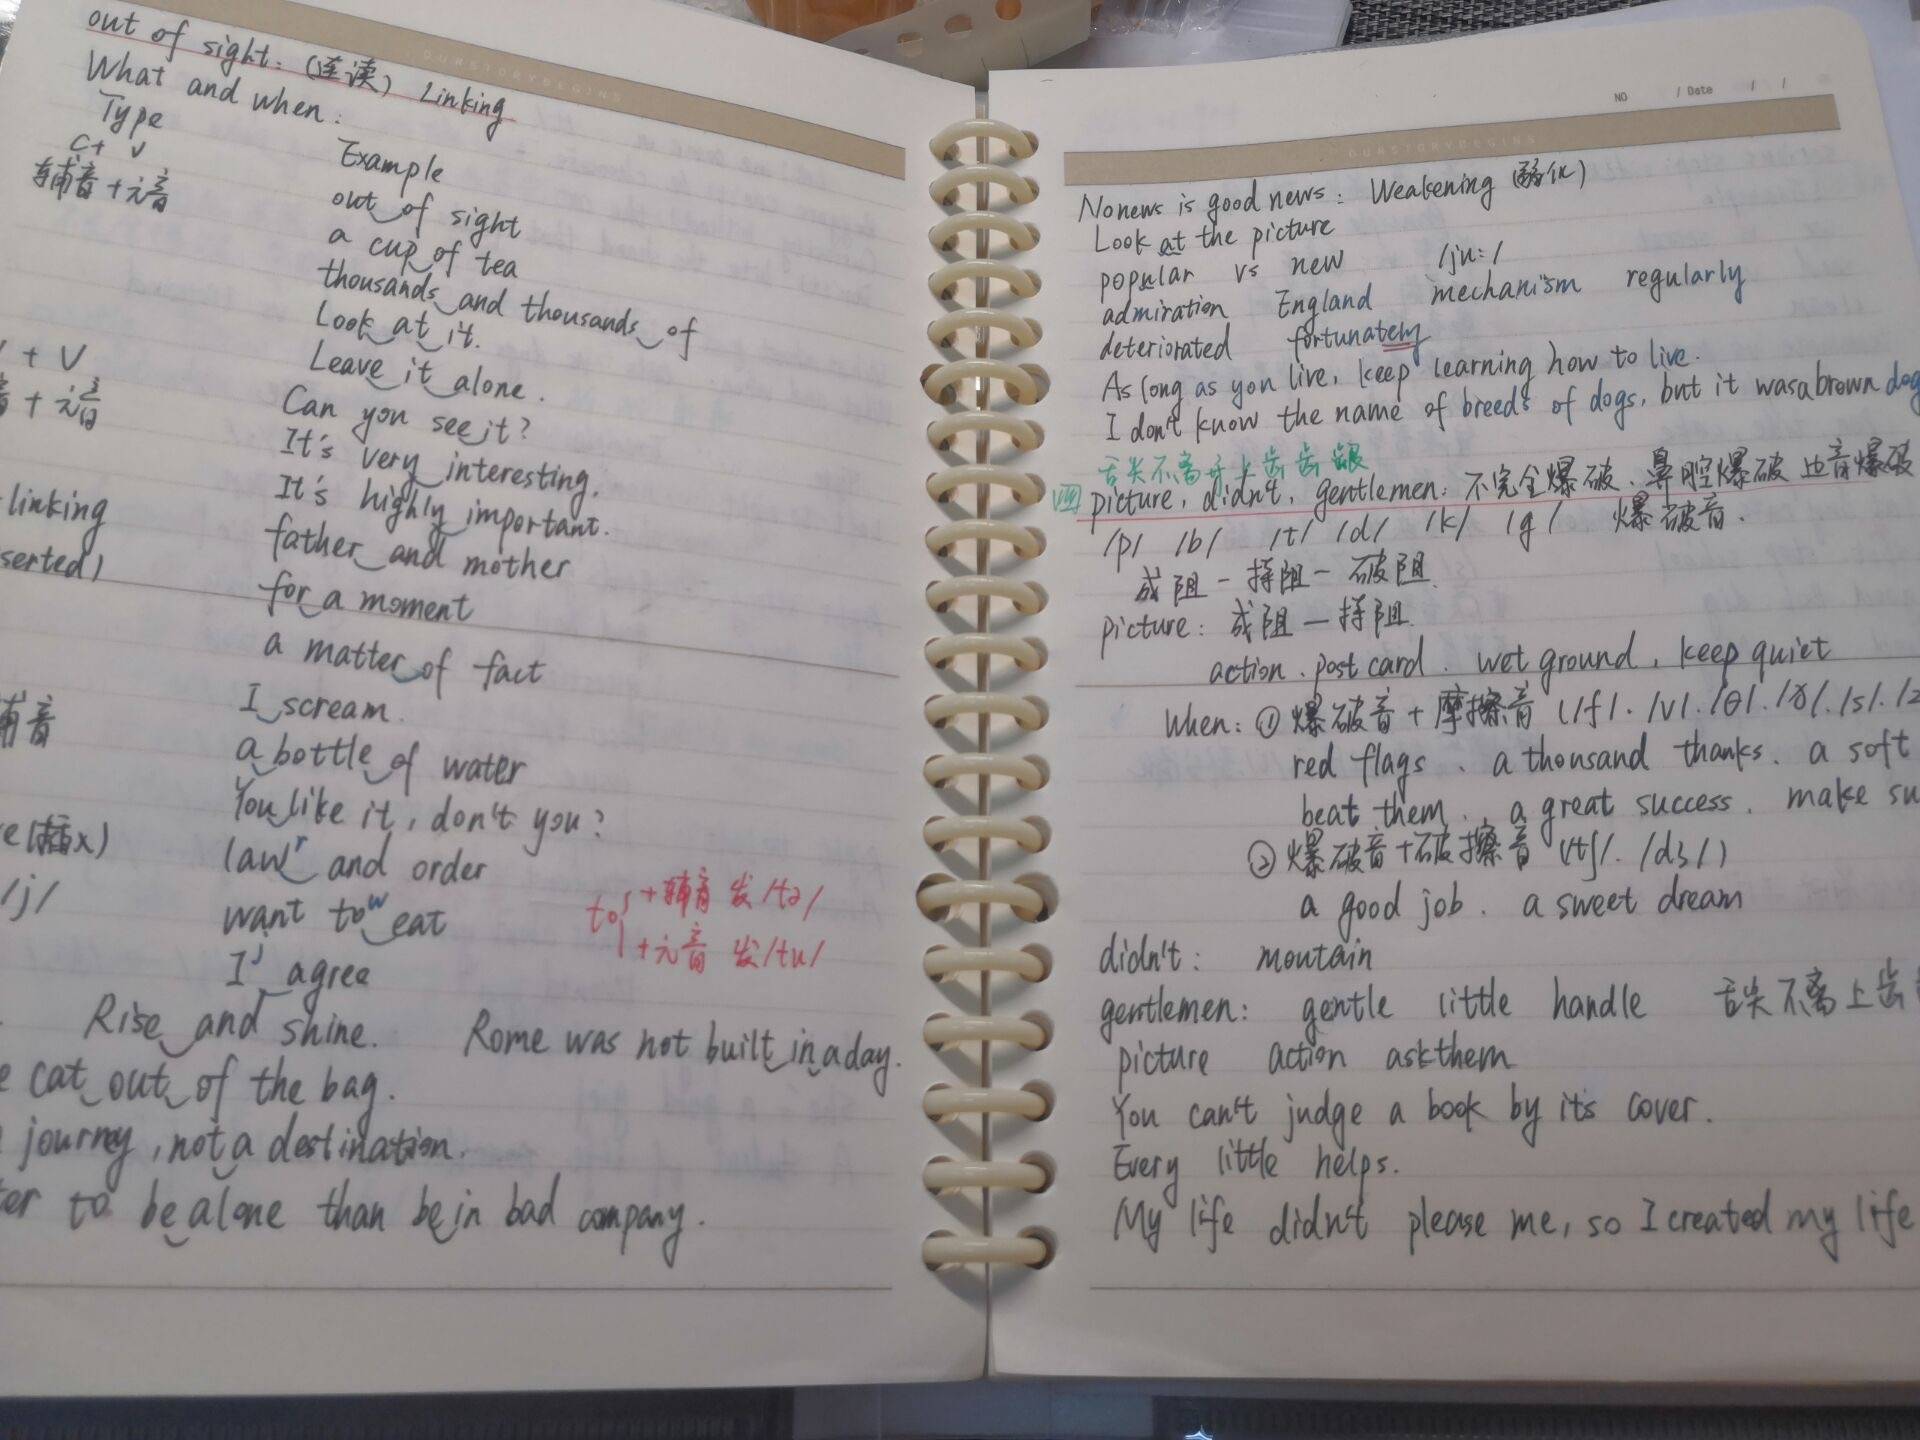 OURSTORYBEGINS
out of sight: (连读) Linking
What and when:
Type
Example
C+ V
辅音+元音
out of sight
a cup of tea
thousands and thousands of
Look at it.
Leave it alone.
+ V
音+元音
Can you see it?
It's very interesting.
It's highly important.
linking
serted)
father and mother
for a moment
a matter of fact
辅音
I scream.
a bottle of water
You like it, don't you?
e(插入)
law r and order
/j/
want to w eat
I j agree
to +辅音 发/tə/
+元音 发/tu/
Rise and shine. Rome was not built in a day.
e cat out of the bag.
journey, not a destination.
ter to be alone than be in bad company.
NO / Date / /
OURSTORYBEGINS
No news is good news: Weakening
Look at the picture
popular vs new /ju:/
admiration England mechanism regularly
deteriorated fortunately
As long as you live, keep learning how to live.
I don't know the name of breeds of dogs, but it was a brown dog
舌尖不离开上齿齿龈
四 picture, didn't, gentlemen: 不完全爆破、鼻腔爆破 边音爆破
/p/ /b/ /t/ /d/ /k/ /g/ 爆破音.
成阻-持阻-破阻
picture: 成阻-持阻.
action. post card. wet ground, keep quiet
When: ① 爆破音+摩擦音 (/f/. /v/. /θ/. /ð/. /s/. /z
red flags. a thousand thanks. a soft
beat them. a great success. make su
② 爆破音+破擦音 (/tʃ/. /dʒ/)
a good job. a sweet dream
didn't: moutain
gentlemen: gentle little handle 舌尖不离上齿
picture action ask them
You can't judge a book by it's cover.
Every little helps.
My life didn't please me, so I created my life